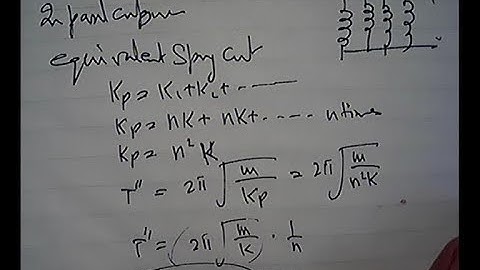 In parallel
equivalent Spring
Kp = K₁+K₂+ -----
Kp = nK + nK+ ----- n times
Kp = n² K
T" = 2π √(m/Kp) = 2π √(m/n²K)
T" = (2π √(m/K)) · 1/n